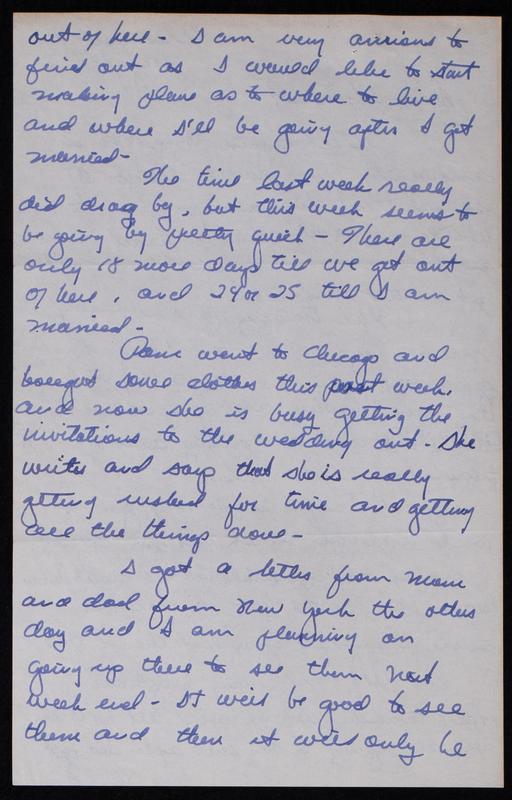 out of here - I am very anxious to
find out as I would like to start
making plans as to where to live
and where I'll be going after I get
married -
The time last week really
did drag by, but this week seems to
be going by pretty quick - There are
only 18 more days till we get out
of here, and 24 or 25 till I am
married -
Pam went to Chicago and
bought some clothes this past week,
and now she is busy getting the
invitations to the wedding out - She
writes and says that she is really
getting rushed for time and getting
all the things done -
I got a letter from mom
and dad from New York the other
day and I am planning on
going up there to see them next
week end - It will be good to see
them and then it will only be